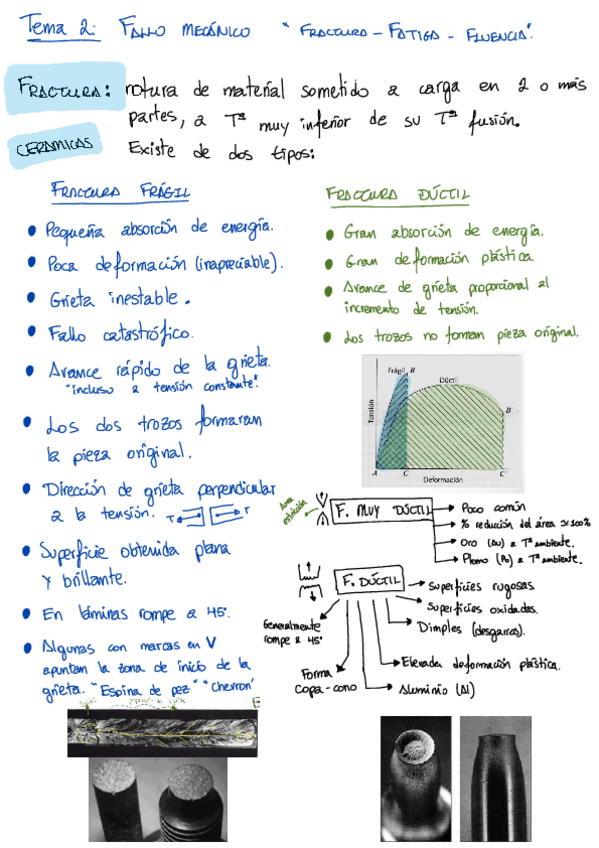 Tema 2: FALLO MECÁNICO "FRACTURA - FATIGA - FLUENCIA".
FRACTURA: rotura de material sometido a carga en 2 o más
partes, a Tª muy inferior de su Tª fusión.
CERAMICAS
Existe de dos tipos:
FRACTURA FRÁGIL
• Pequeña absorción de energía.
• Poca deformación (inapreciable).
• Grieta inestable.
• Fallo catastrófico.
• Avance rápido de la grieta.
"incluso a tensión constante".
• Los dos trozos formaran
la pieza original.
• Dirección de grieta perpendicular
a la tensión. T T
• Superficie obtenida plana
y brillante.
• En láminas rompe a 45º.
• Algunas con marcas en V
apuntam la zona de inicio de la
grieta. "Espina de pez" "Chevron"
FRACTURA DÚCTIL
• Gran absorción de energía.
• Gran deformación plástica
• Avance de grieta proporcional al
incremento de tensión.
• Los trozos no forman pieza original.
Frágil B
Dúctil
B'
Tensión
A C C'
Deformación
Área estricción
F. MUY DÚCTIL
Poco común
% reducción del área ≈100%
Oro (Au) a Tª ambiente.
Plomo (Pb) a Tª ambiente.
F. DÚCTIL
Superficies rugosas.
Superficies oxidadas.
Dimples (desgarros).
Elevada deformación plástica.
Aluminio (Al)
Forma
copa-cono
Generalmente
rompe a 45º